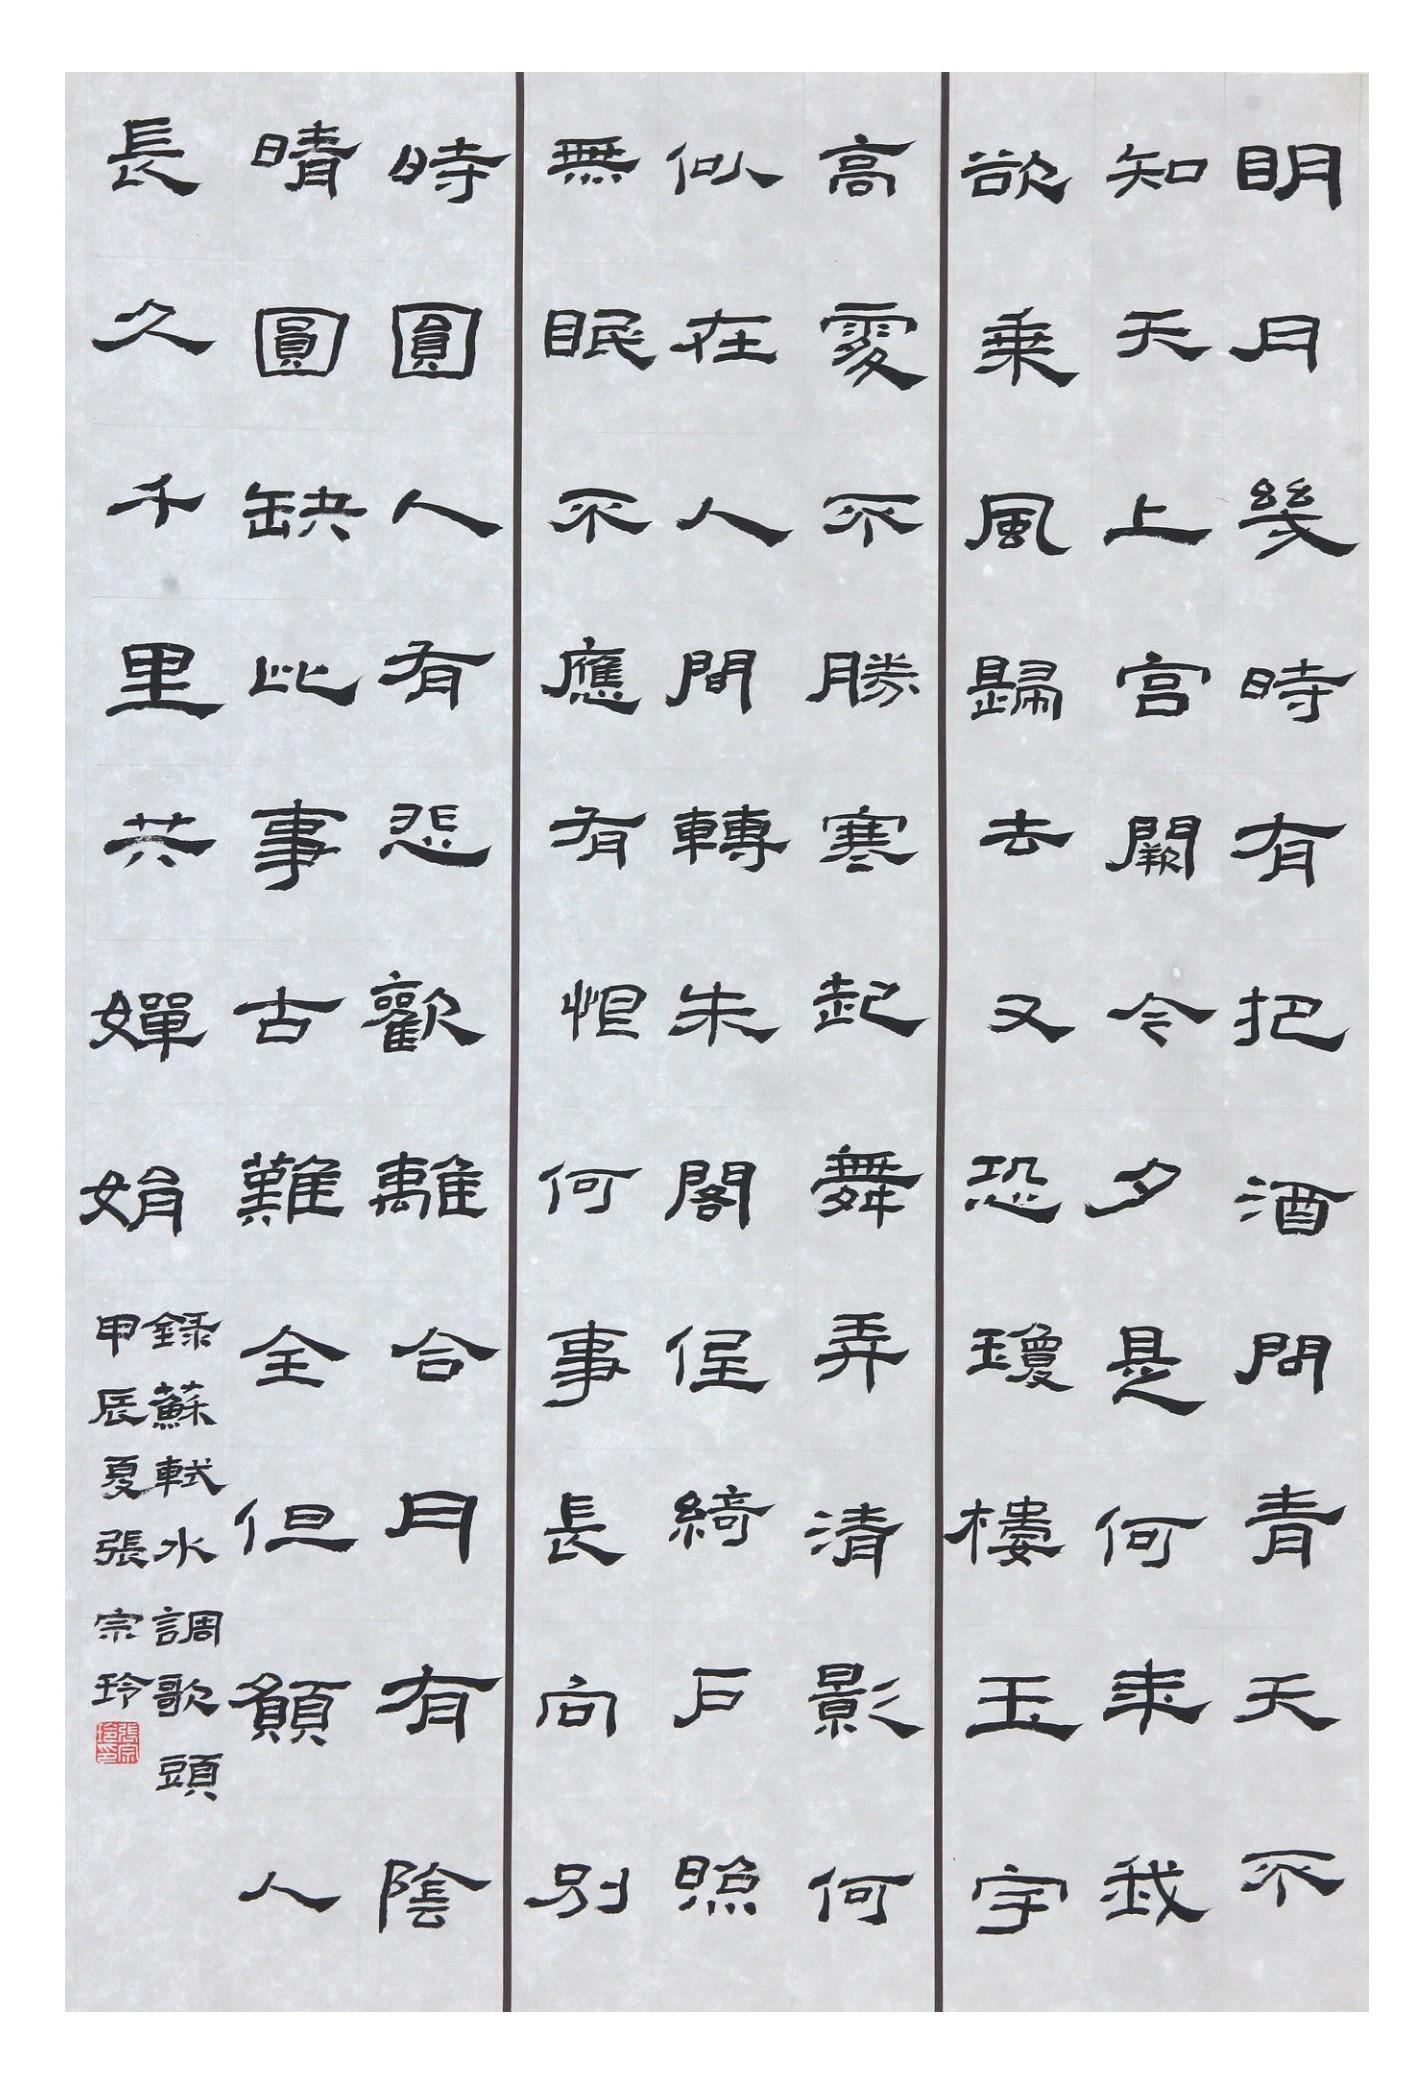 明月幾時有把酒問青天不
知天上宫闕今夕是何年我
欲乘風歸去又恐瓊樓玉宇
高處不勝寒起舞弄清影何
似在人間轉朱閣低綺戶照
無眠不應有恨何事長向別
時圓人有悲歡離合月有陰
晴圓缺此事古難全但願人
長久千里共嬋娟
錄蘇軾水調歌頭
甲辰夏張宗玲
張宗玲印